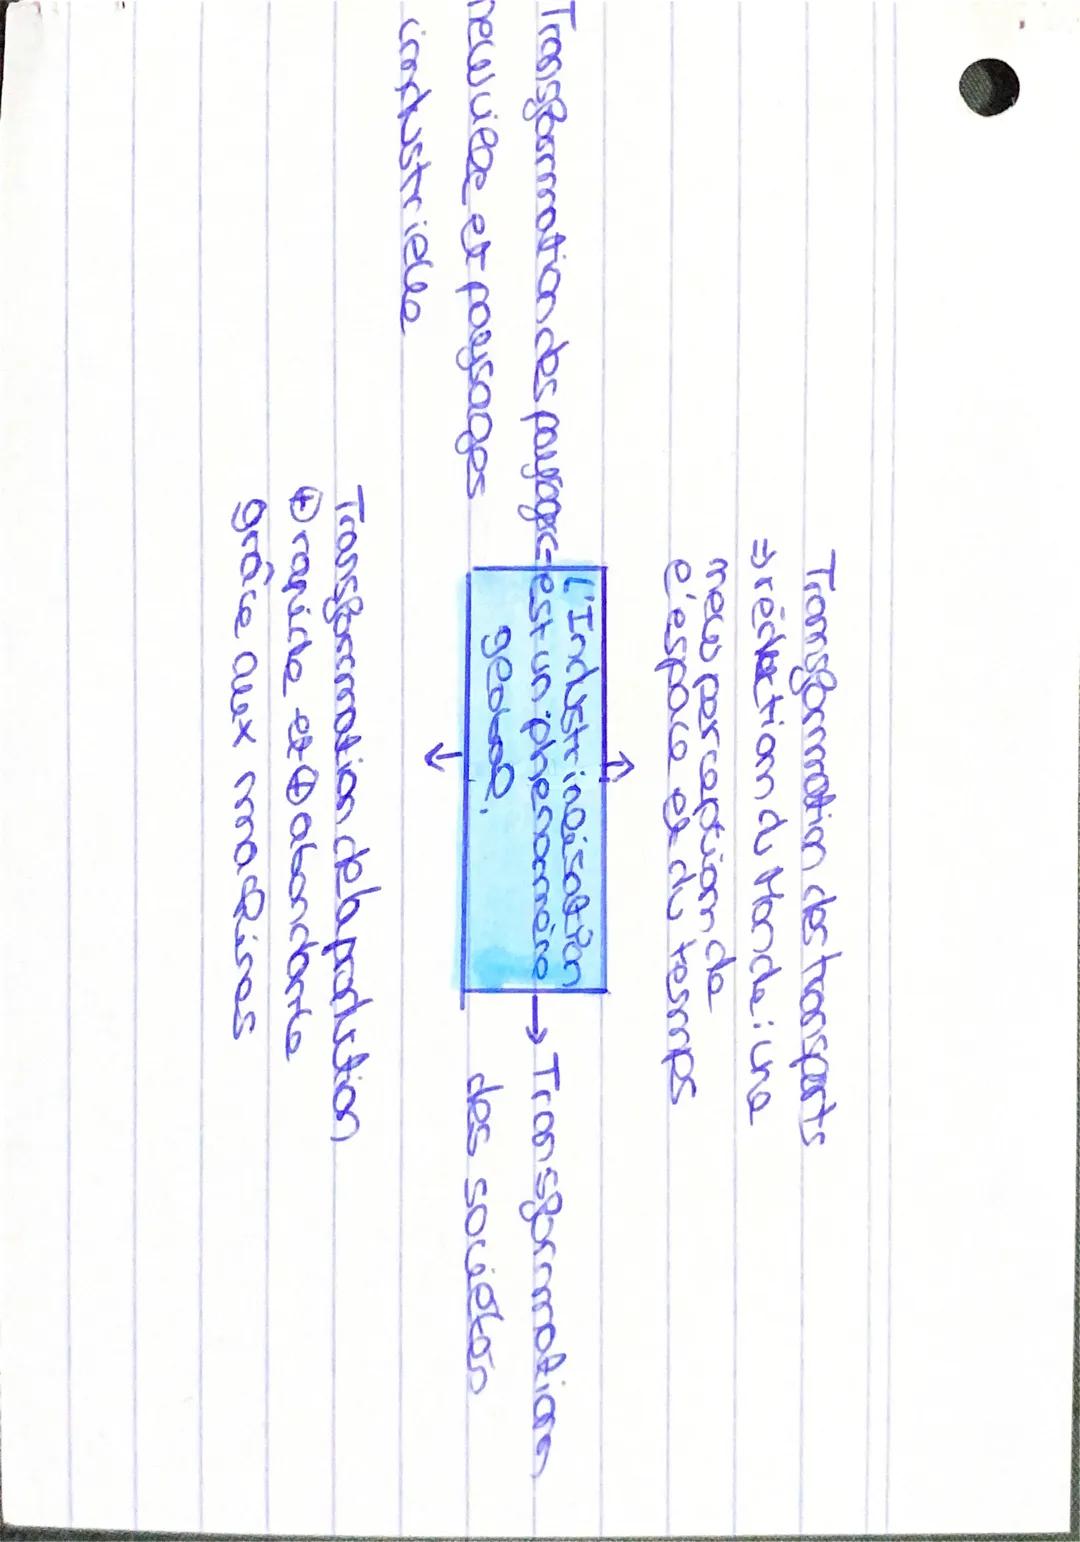 Transformation des transports
⇒ réduction du Monde : une
new perception de
l'espace et du temps
Transformation des paysage
new ville et paysages
industrielle
L'Industrialisation
est un phénomène
global.
Transformation
des sociétés
Transformation de la production
⊕ rapide et ⊕ abondante
grâce aux machines